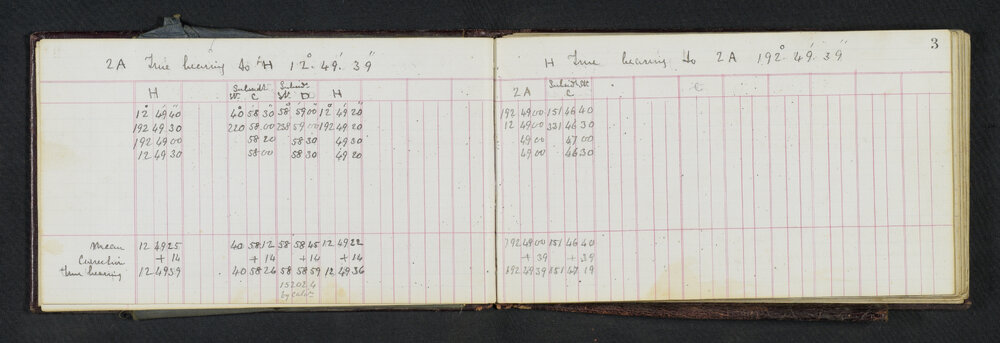 3
2A True bearing to H 12° 49' 39"
H
W. C
D
H
12° 49' 40" 40° 58' 30" 58° 59' 00" 12° 49' 20"
192 49 30 220 58 00 238 59 00 192 49 20
192 49 00 58 20 58 30 49 30
12 49 30 58 00 58 30 49 20
Mean 12 49 25 40 58 12 58 58 45 12 49 22
Correction + 14 + 14 + 14 + 14
True bearing 12 49 39 40 58 26 58 58 59 12 49 36
H True bearing to 2A 192° 49' 39"
2A
C
192 49 00 151 46 40
12 49 00 331 46 30
49 00 47 00
49 00 46 30
192 49 00 151 46 40
+ 39 + 39
192 49 39 151 47 19